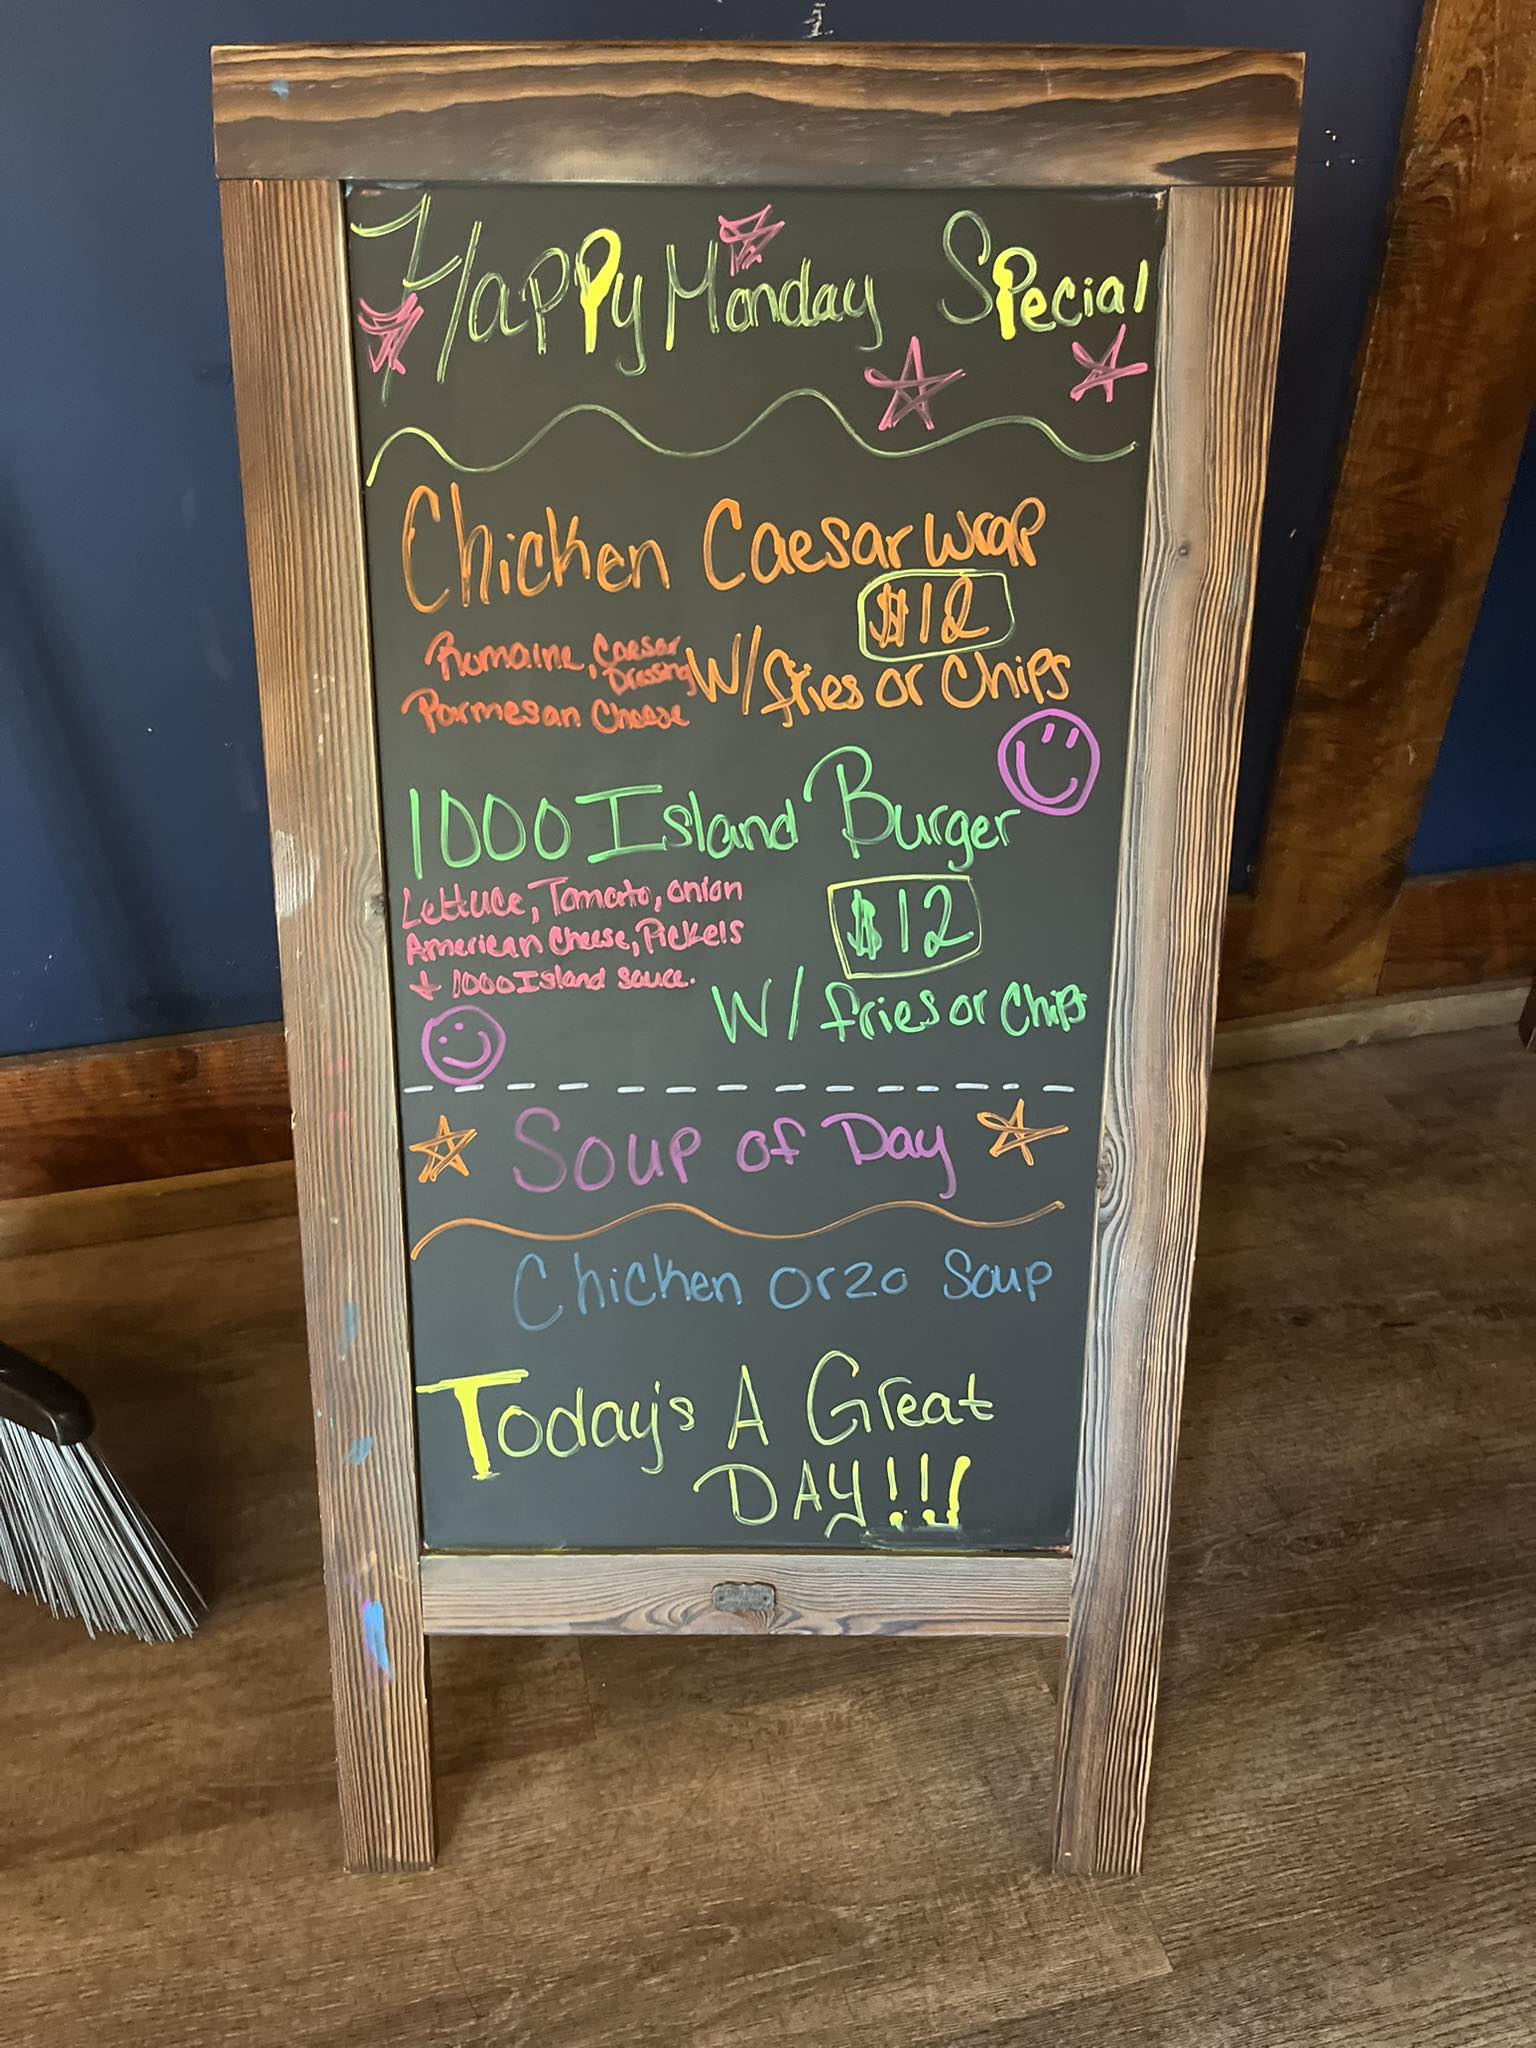 Happy Monday Special
Chicken Caesar Wrap
$12
Romaine, Caesar
Dressing
Parmesan Cheese
W/fries or Chips
1000 Island Burger
Lettuce, Tomato, onion
American Cheese, Pickels
+ 1000 Island sauce.
$12
W/ fries or Chips
Soup of Day
Chicken Orzo Soup
Today's A Great
DAY!!!